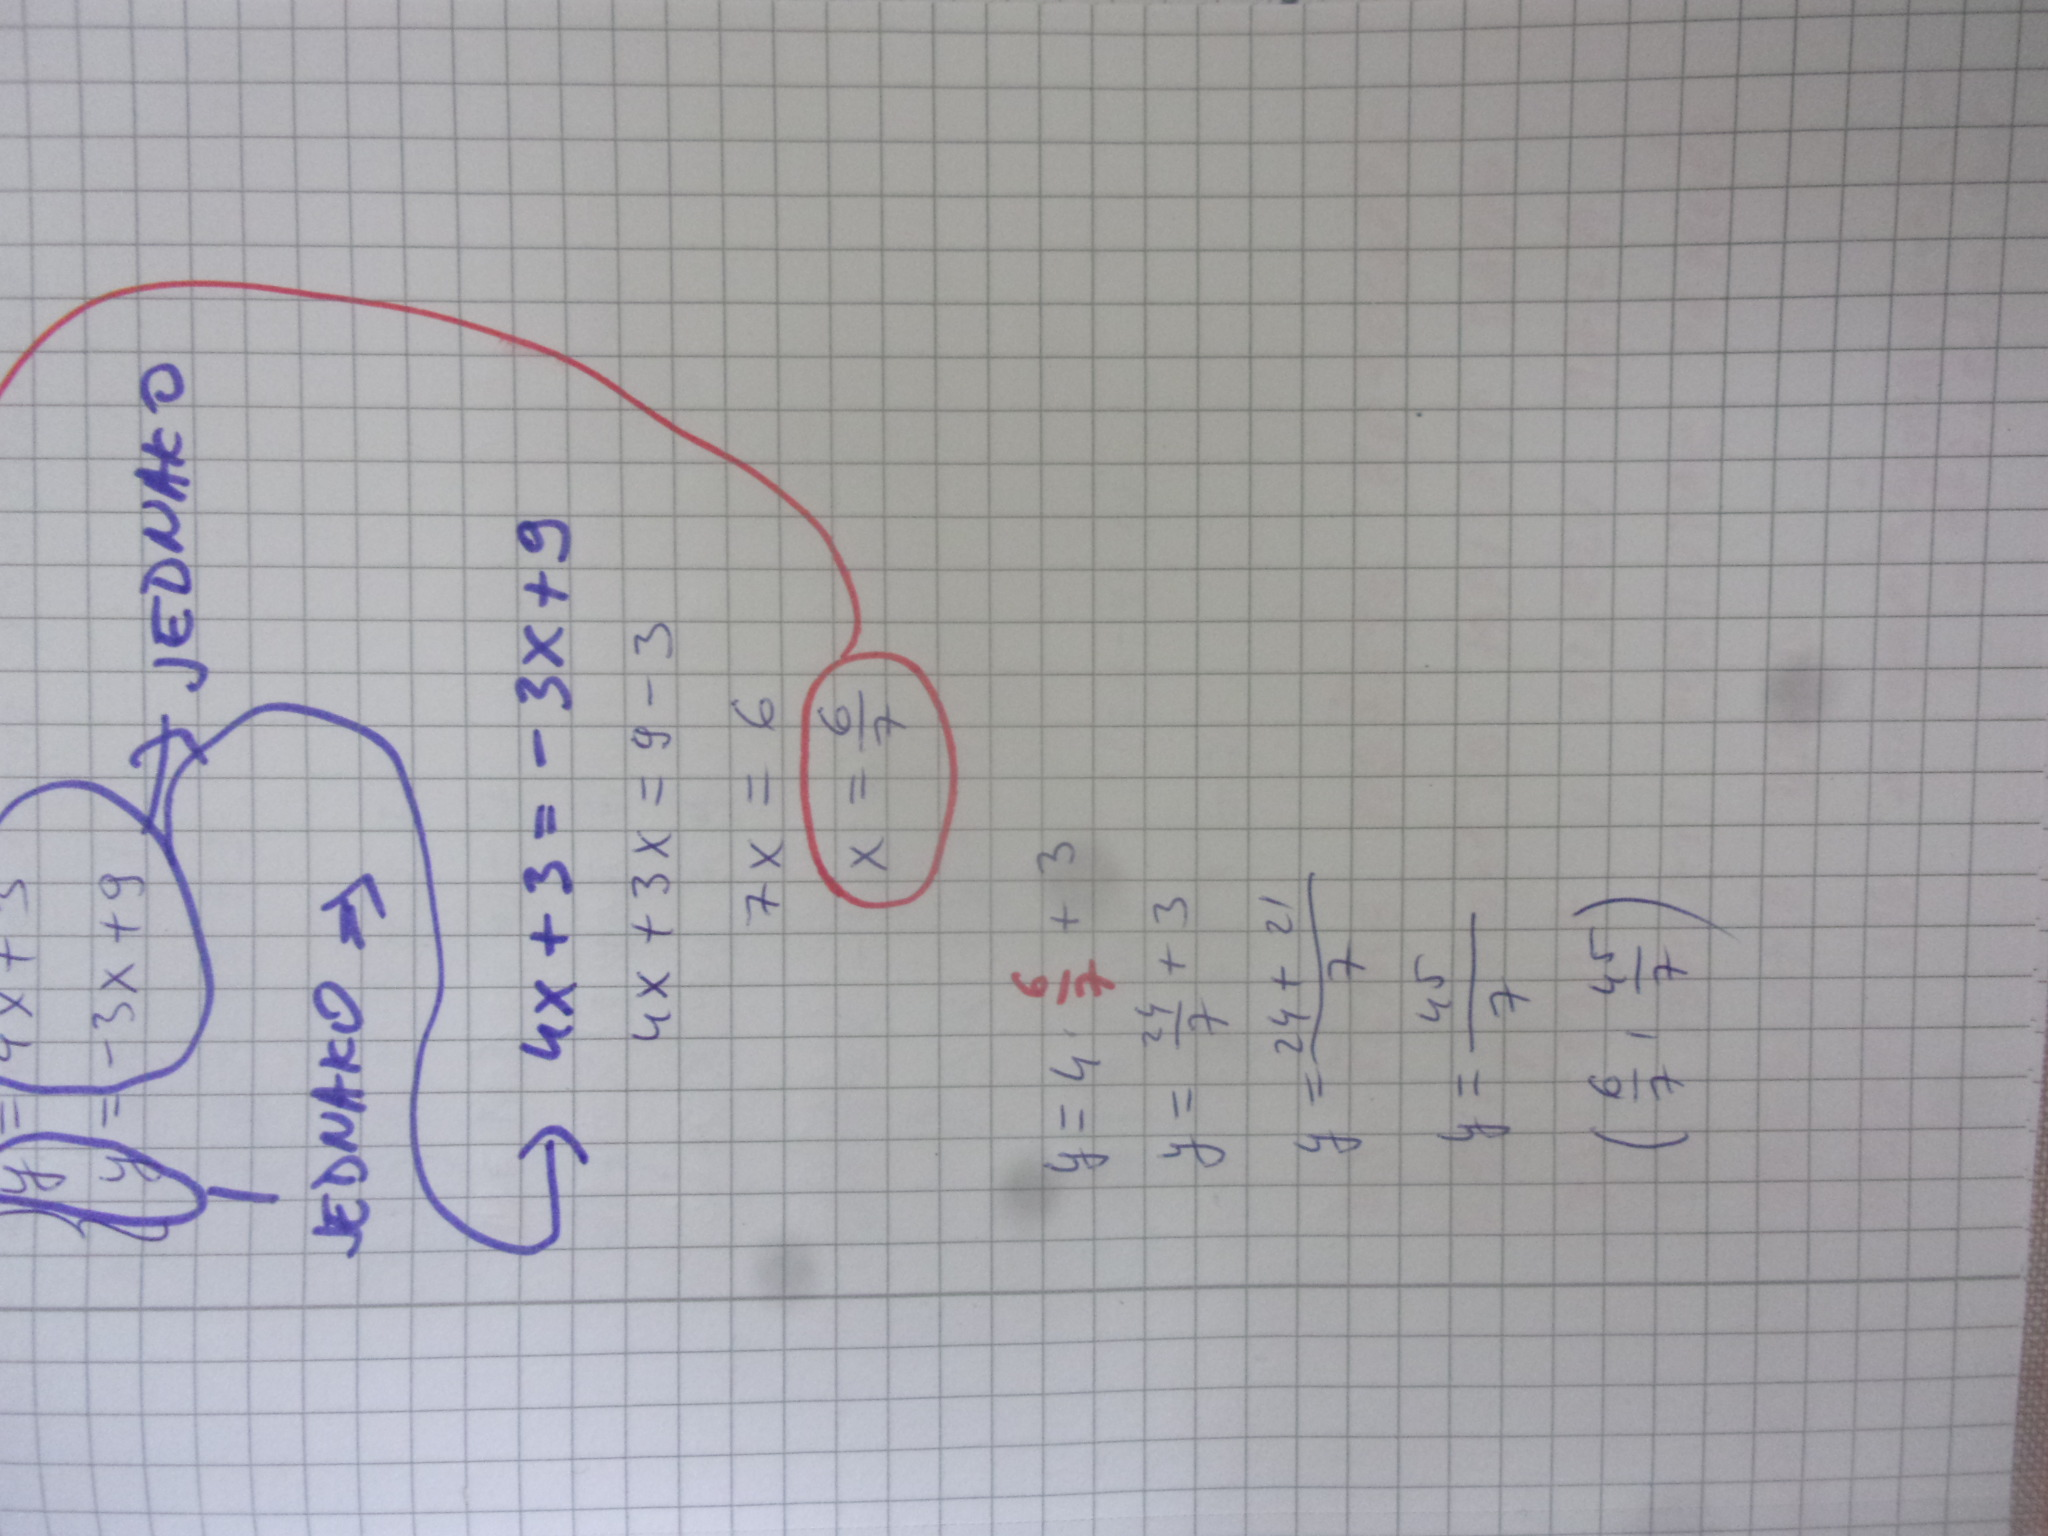 y = 4x + 3
y = -3x + 9
JEDNAKO
JEDNAKO ⇒
4x + 3 = -3x + 9
4x + 3x = 9 - 3
7x = 6
x = 6/7
y = 4 · 6/7 + 3
y = 24/7 + 3
y = 24 + 21/7
y = 45/7
(6/7, 45/7)